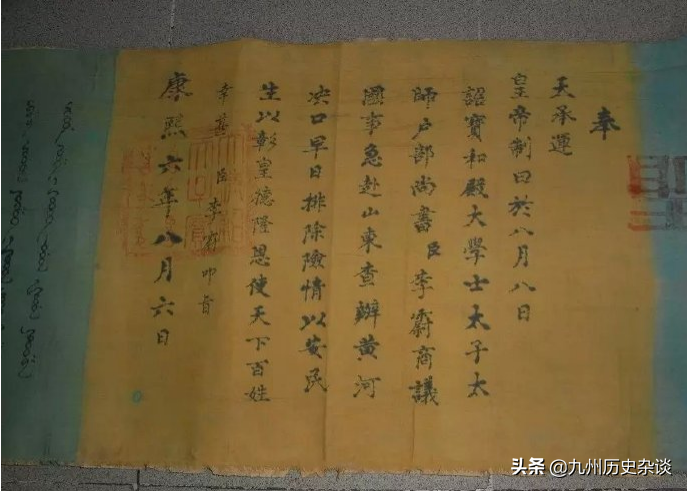 奉
天承運
皇帝制曰於八月八日
詔寶和殿大學士太子太
師户部尚書臣李霨商議
國事急赴山東查辦黄河
决口早日排除險情以安民
生以彰皇德隆恩使天下百姓
幸甚 臣李霨叩首
康熙六年八月六日
头条 @九州历史杂谈